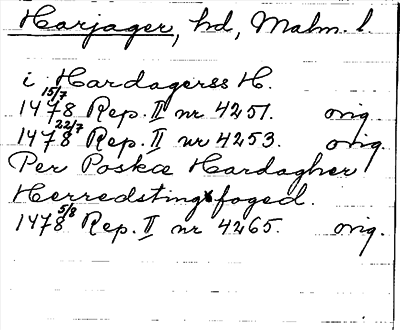 Harjager, hd, Malm. l.
i Hardagerss H.
1478 15/7 Rep. II nr 4251. orig.
1478 22/7 Rep. II nr 4253. orig.
Per Poskæ Hardagher
Herredstingsfoged.
1478 5/8 Rep. II nr 4265. orig.